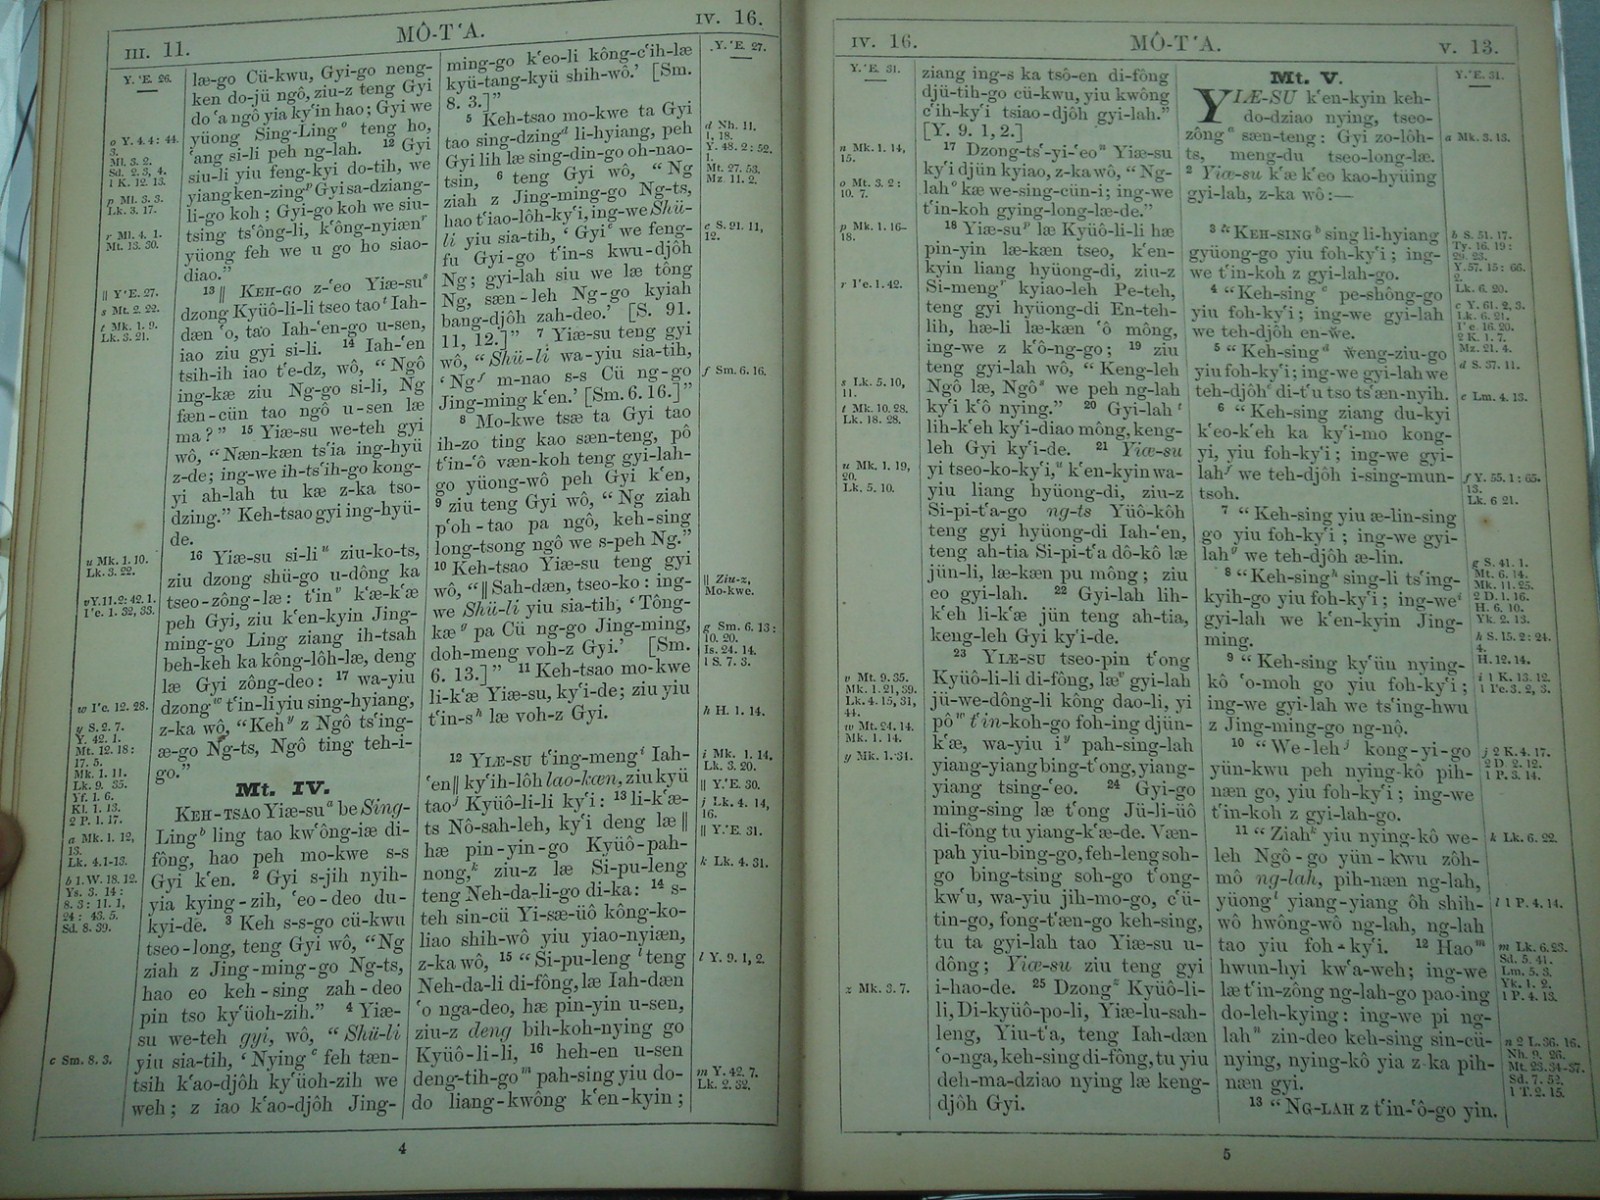 III. 11.
MÔ-T‘A.
IV. 16.
Y. ‘E. 26.
o Y. 4.4: 44.
3.
Ml. 3. 2.
Sd. 2. 3, 4.
1 K. 12. 13.
p Ml. 3. 3.
Lk. 3. 17.
r Ml. 4. 1.
Mt. 13. 30.
|| Y‘E. 27.
s Mt. 2. 22.
t Mk. 1. 9.
Lk. 3. 21.
u Mk. 1. 10.
Lk. 3. 22.
v Y. 11. 2: 42. 1.
I‘e. 1. 32, 33.
w I‘e. 12. 28.
y S. 2. 7.
Y. 42. 1.
Mt. 12. 18:
17. 5.
Mk. 1. 11.
Lk. 9. 35.
Yf. 1. 6.
Kl. 1. 13.
2 P. 1. 17.
a Mk. 1. 12,
13.
Lk. 4.1-13.
b 1. W. 18. 12.
Ys. 3. 14:
8. 3: 11. 1,
24: 43. 5.
Sd. 8. 39.
c Sm. 8. 3.
læ-go Cü-kwu, Gyi-go neng-
ken do-jü ngô, ziu-z teng Gyi
do ‘a ngô yia ky‘in hao; Gyi we
yüong Sing-Ling o teng ho,
‘ang si-li peh ng-lah. 12 Gyi
siu-li yiu feng-kyi do-tih, we
yiang ken-zing p Gyi sa-dziang-
li-go koh; Gyi-go koh we siu-
tsing ts‘ông-li, k‘ông-nyiæn r
yüong feh we u go ho siao-
diao.”
13 || KEH-GO z-‘eo Yiæ-su s
dzong Kyüô-li-li tseo tao t Iah-
dæn ‘o, tao Iah-‘en-go u-sen,
iao ziu gyi si-li. 14 Iah-‘en
tsih-ih iao t‘e-dz, wô, “Ngô
ing-kæ ziu Ng-go si-li, Ng
fæn-cün tao ngô u-sen læ
ma?” 15 Yiæ-su we-teh gyi
wô, “Næn-kæn ts‘ia ing-hyü
z-de; ing-we ih-ts‘ih-go kong-
yi ah-lah tu kæ z-ka tso-
dzing.” Keh-tsao gyi ing-hyü-
de.
16 Yiæ-su si-li u ziu-ko-ts,
ziu dzong shü-go u-dông ka
tseo-zông-læ: t‘in v k‘æ-k‘æ
peh Gyi, ziu k‘en-kyin Jing-
ming-go Ling ziang ih-tsah
beh-keh ka kông-lôh-læ, deng
læ Gyi zông-deo: 17 wa-yiu
dzong w t‘in-li yiu sing-hyiang,
z-ka wô, “Keh y z Ngô ts‘ing-
æ-go Ng-ts, Ngô ting teh-i-
go.”
Mt. IV.
KEH-TSAO Yiæ-su a be Sing-
Ling b ling tao kw‘ông-iæ di-
fông, hao peh mo-kwe s-s
Gyi k‘en. 2 Gyi s-jih nyih-
yia kying-zih, ‘eo-deo du-
kyi-de. 3 Keh s-s-go cü-kwu
tseo-long, teng Gyi wô, “Ng
ziah z Jing-ming-go Ng-ts,
hao eo keh-sing zah-deo
pin tso ky‘üoh-zih.” 4 Yiæ-
su we-teh gyi, wô, “Shü-li
yiu sia-tih, ‘Nying c feh tæn-
tsih k‘ao-djôh ky‘üoh-zih we
weh; z iao k‘ao-djôh Jing-
ming-go k‘eo-li kông-c‘ih-læ
kyü-tang-kyü shih-wô.’ [Sm.
8. 3.]”
5 Keh-tsao mo-kwe ta Gyi
tao sing-dzing d li-hyiang, peh
Gyi lih læ sing-din-go oh-nao-
tsin, 6 teng Gyi wô, “Ng
ziah z Jing-ming-go Ng-ts,
hao t‘iao-lôh-ky‘i, ing-we Shü-
li yiu sia-tih, ‘Gyi e we feng-
fu Gyi-go t‘in-s kwu-djôh
Ng; gyi-lah siu we læ tông
Ng, sæn-leh Ng-go kyiah
bang-djôh zah-deo.’ [S. 91.
11, 12.]” 7 Yiæ-su teng gyi
wô, “Shü-li wa-yiu sia-tih,
‘Ng f m-nao s-s Cü ng-go
Jing-ming k‘en.’ [Sm. 6. 16.]”
8 Mo-kwe tsæ ta Gyi tao
ih-zo ting kao sæn-teng, pô
t‘in-‘ô væn-koh teng gyi-lah-
go yüong-wô peh Gyi k‘en,
9 ziu teng Gyi wô, “Ng ziah
p‘oh-tao pa ngô, keh-sing
long-tsong ngô we s-peh Ng.”
10 Keh-tsao Yiæ-su teng gyi
wô, “|| Sah-dæn, tseo-ko: ing-
we Shü-li yiu sia-tih, ‘Tông-
kæ g pa Cü ng-go Jing-ming,
doh-meng voh-z Gyi.’ [Sm.
6. 13.]” 11 Keh-tsao mo-kwe
li-k‘æ Yiæ-su, ky‘i-de; ziu yiu
t‘in-s h læ voh-z Gyi.
12 YIÆ-SU t‘ing-meng i Iah-
‘en || ky‘ih-lôh lao-kæn, ziu kyü
tao j Kyüô-li-li ky‘i: 13 li-k‘æ-
ts Nô-sah-leh, ky‘i deng læ ||
hæ pin-yin-go Kyüô-pah-
nong, k ziu-z læ Si-pu-leng
teng Neh-da-li-go di-ka: 14 s-
teh sin-cü Yi-sæ-üô kông-ko-
liao shih-wô yiu yiao-nyiæn,
z-ka wô, 15 “Si-pu-leng l teng
Neh-da-li di-fông, læ Iah-dæn
‘o nga-deo, hæ pin-yin u-sen,
ziu-z deng bih-koh-nying go
Kyüô-li-li, 16 heh-en u-sen
deng-tih-go m pah-sing yiu do-
do liang-kwông k‘en-kyin;
Y. ‘E. 27.
d Nh. 11.
1, 18.
Y. 48. 2: 52.
1.
Mt. 27. 53.
Mz. 11. 2.
e S. 91. 11,
12.
f Sm. 6. 16.
|| Ziu-z,
Mo-kwe.
g Sm. 6. 13:
10. 20.
Is. 24. 14.
1 S. 7. 3.
h H. 1. 14.
i Mk. 1. 14.
Lk. 3. 20.
|| Y. ‘E. 30.
j Lk. 4. 14,
16.
|| Y. ‘E. 31.
k Lk. 4. 31.
l Y. 9. 1, 2.
m Y. 42. 7.
Lk. 2. 32.
4
IV. 16.
MÔ-T‘A.
V. 13.
Y. ‘E. 31.
n Mk. 1. 14,
15.
o Mt. 3. 2:
10. 7.
p Mk. 1. 16-
18.
r I‘e. 1. 42.
s Lk. 5. 10,
11.
t Mk. 10. 28.
Lk. 18. 28.
u Mk. 1. 19,
20.
Lk. 5. 10.
v Mt. 9. 35.
Mk. 1. 21, 39.
Lk. 4. 15, 31,
44.
w Mt. 24. 14.
Mk. 1. 14.
y Mk. 1. 34.
z Mk. 3. 7.
ziang ing-s ka tsô-en di-fông
djü-tih-go cü-kwu, yiu kwông
c‘ih-ky‘i tsiao-djôh gyi-lah.”
[Y. 9. 1, 2.]
17 Dzong-ts‘-yi-‘eo n Yiæ-su
ky‘i djün kyiao, z-ka wô, “Ng-
lah o kæ we-sing-cün-i; ing-we
t‘in-koh gying-long-læ-de.”
18 Yiæ-su p læ Kyüô-li-li hæ
pin-yin læ-kæn tseo, k‘en-
kyin liang hyüong-di, ziu-z
Si-meng r kyiao-leh Pe-teh,
teng gyi hyüong-di En-teh-
lih, hæ-li læ-kæn ‘ô mông,
ing-we z k‘ô-ng-go; 19 ziu
teng gyi-lah wô, “Keng-leh
Ngô læ, Ngô s we peh ng-lah
ky‘i k‘ô nying.” 20 Gyi-lah t
lih-k‘eh ky‘i-diao mông, keng-
leh Gyi ky‘i-de. 21 Yiæ-su
yi tseo-ko-ky‘i, u k‘en-kyin wa-
yiu liang hyüong-di, ziu-z
Si-pi-t‘a-go ng-ts Yüô-kôh
teng gyi hyüong-di Iah-‘en,
teng ah-tia Si-pi-t‘a dô-kô læ
jün-li, læ-kæn pu mông; ziu
eo gyi-lah. 22 Gyi-lah lih-
k‘eh li-k‘æ jün teng ah-tia,
keng-leh Gyi ky‘i-de.
23 YIÆ-SU tseo-pin t‘ong
Kyüô-li-li di-fông, læ v gyi-lah
jü-we-dông-li kông dao-li, yi
pô w t‘in-koh-go foh-ing djün-
k‘æ, wa-yiu i y pah-sing-lah
yiang-yiang bing-t‘ong, yiang-
yiang tsing-‘eo. 24 Gyi-go
ming-sing læ t‘ong Jü-li-üô
di-fông tu yiang-k‘æ-de. Væn-
pah yiu-bing-go, feh-leng soh-
go bing-tsing soh-go t‘ong-
kw‘u, wa-yiu jih-mo-go, c‘ü-
tin-go, fong-t‘æn-go keh-sing,
tu ta gyi-lah tao Yiæ-su u-
dông; Yiæ-su ziu teng gyi
i-hao-de. 25 Dzong z Kyüô-li-
li, Di-kyüô-po-li, Yiæ-lu-sah-
leng, Yiu-t‘a, teng Iah-dæn
‘o-nga, keh-sing di-fông, tu yiu
deh-ma-dziao nying læ keng-
djôh Gyi.
Mt. V.
YIÆ-SU k‘en-kyin keh-
do-dziao nying, tseo-
zông a sæn-teng: Gyi zo-lôh-
ts, meng-du tseo-long-læ.
2 Yiæ-su k‘æ k‘eo kao-hyüing
gyi-lah, z-ka wô:—
3 “KEH-SING b sing li-hyiang
gyüong-go yiu foh-ky‘i; ing-
we t‘in-koh z gyi-lah-go.
4 “Keh-sing c pe-shông-go
yiu foh-ky‘i; ing-we gyi-lah
we teh-djôh en-ẅe.
5 “Keh-sing d ẅeng-ziu-go
yiu foh-ky‘i; ing-we gyi-lah we
teh-djôh e di-t‘u tso ts‘æn-nyih.
6 “Keh-sing ziang du-kyi
k‘eo-k‘eh ka ky‘i-mo kong-
yi, yiu foh-ky‘i; ing-we gyi-
lah f we teh-djôh i-sing-mun-
tsoh.
7 “Keh-sing yiu æ-lin-sing
go yiu foh-ky‘i; ing-we gyi-
lah g we teh-djôh æ-lin.
8 “Keh-sing h sing-li ts‘ing-
kyih-go yiu foh-ky‘i; ing-we i
gyi-lah we k‘en-kyin Jing-
ming.
9 “Keh-sing ky‘ün nying-
kô ‘o-moh go yiu foh-ky‘i;
ing-we gyi-lah we ts‘ing-hwu
z Jing-ming-go ng-nô.
10 “We-leh j kong-yi-go
yün-kwu peh nying-kô pih-
næn go, yiu foh-ky‘i; ing-we
t‘in-koh z gyi-lah-go.
11 “Ziah k yiu nying-kô we-
leh Ngô-go yün-kwu zôh-
mô ng-lah, pih-næn ng-lah,
yüong l yiang-yiang ôh shih-
wô hwông-wô ng-lah, ng-lah
tao yiu foh-ky‘i. 12 Hao m
hwun-hyi kw‘a-weh; ing-we
læ t‘in-zông ng-lah-go pao-ing
do-leh-kying: ing-we pi ng-
lah n zin-deo keh-sing sin-cü-
nying, nying-kô yia z-ka pih-
næn gyi.
13 “NG-LAH z t‘in-‘ô-go yin.
Y. ‘E. 31.
a Mk. 3. 13.
b S. 51. 17.
Ty. 16. 19:
29. 23.
Y. 57. 15: 66.
2.
Lk. 6. 20.
c Y. 61. 2, 3.
Lk. 6. 21.
I‘e. 16. 20.
2 K. 1. 7.
Mz. 21. 4.
d S. 37. 11.
e Lm. 4. 13.
f Y. 55. 1: 65.
13.
Lk. 6 21.
g S. 41. 1.
Mt. 6. 14.
Mk. 11. 25.
2 D. 1. 16.
H. 6. 10.
Yk. 2. 13.
h S. 15. 2: 24.
4.
H. 12. 14.
i 1 K. 13. 12.
1 I‘e. 3. 2, 3.
j 2 K. 4. 17.
2 D. 2. 12.
1 P. 3. 14.
k Lk. 6. 22.
l 1 P. 4. 14.
m Lk. 6. 23.
Sd. 5. 41.
Lm. 5. 3.
Yk. 1. 2.
1 P. 4. 13.
n 2 L. 36. 16.
Nh. 9. 26.
Mt. 23. 34-37.
Sd. 7. 52.
1 T. 2. 15.
5